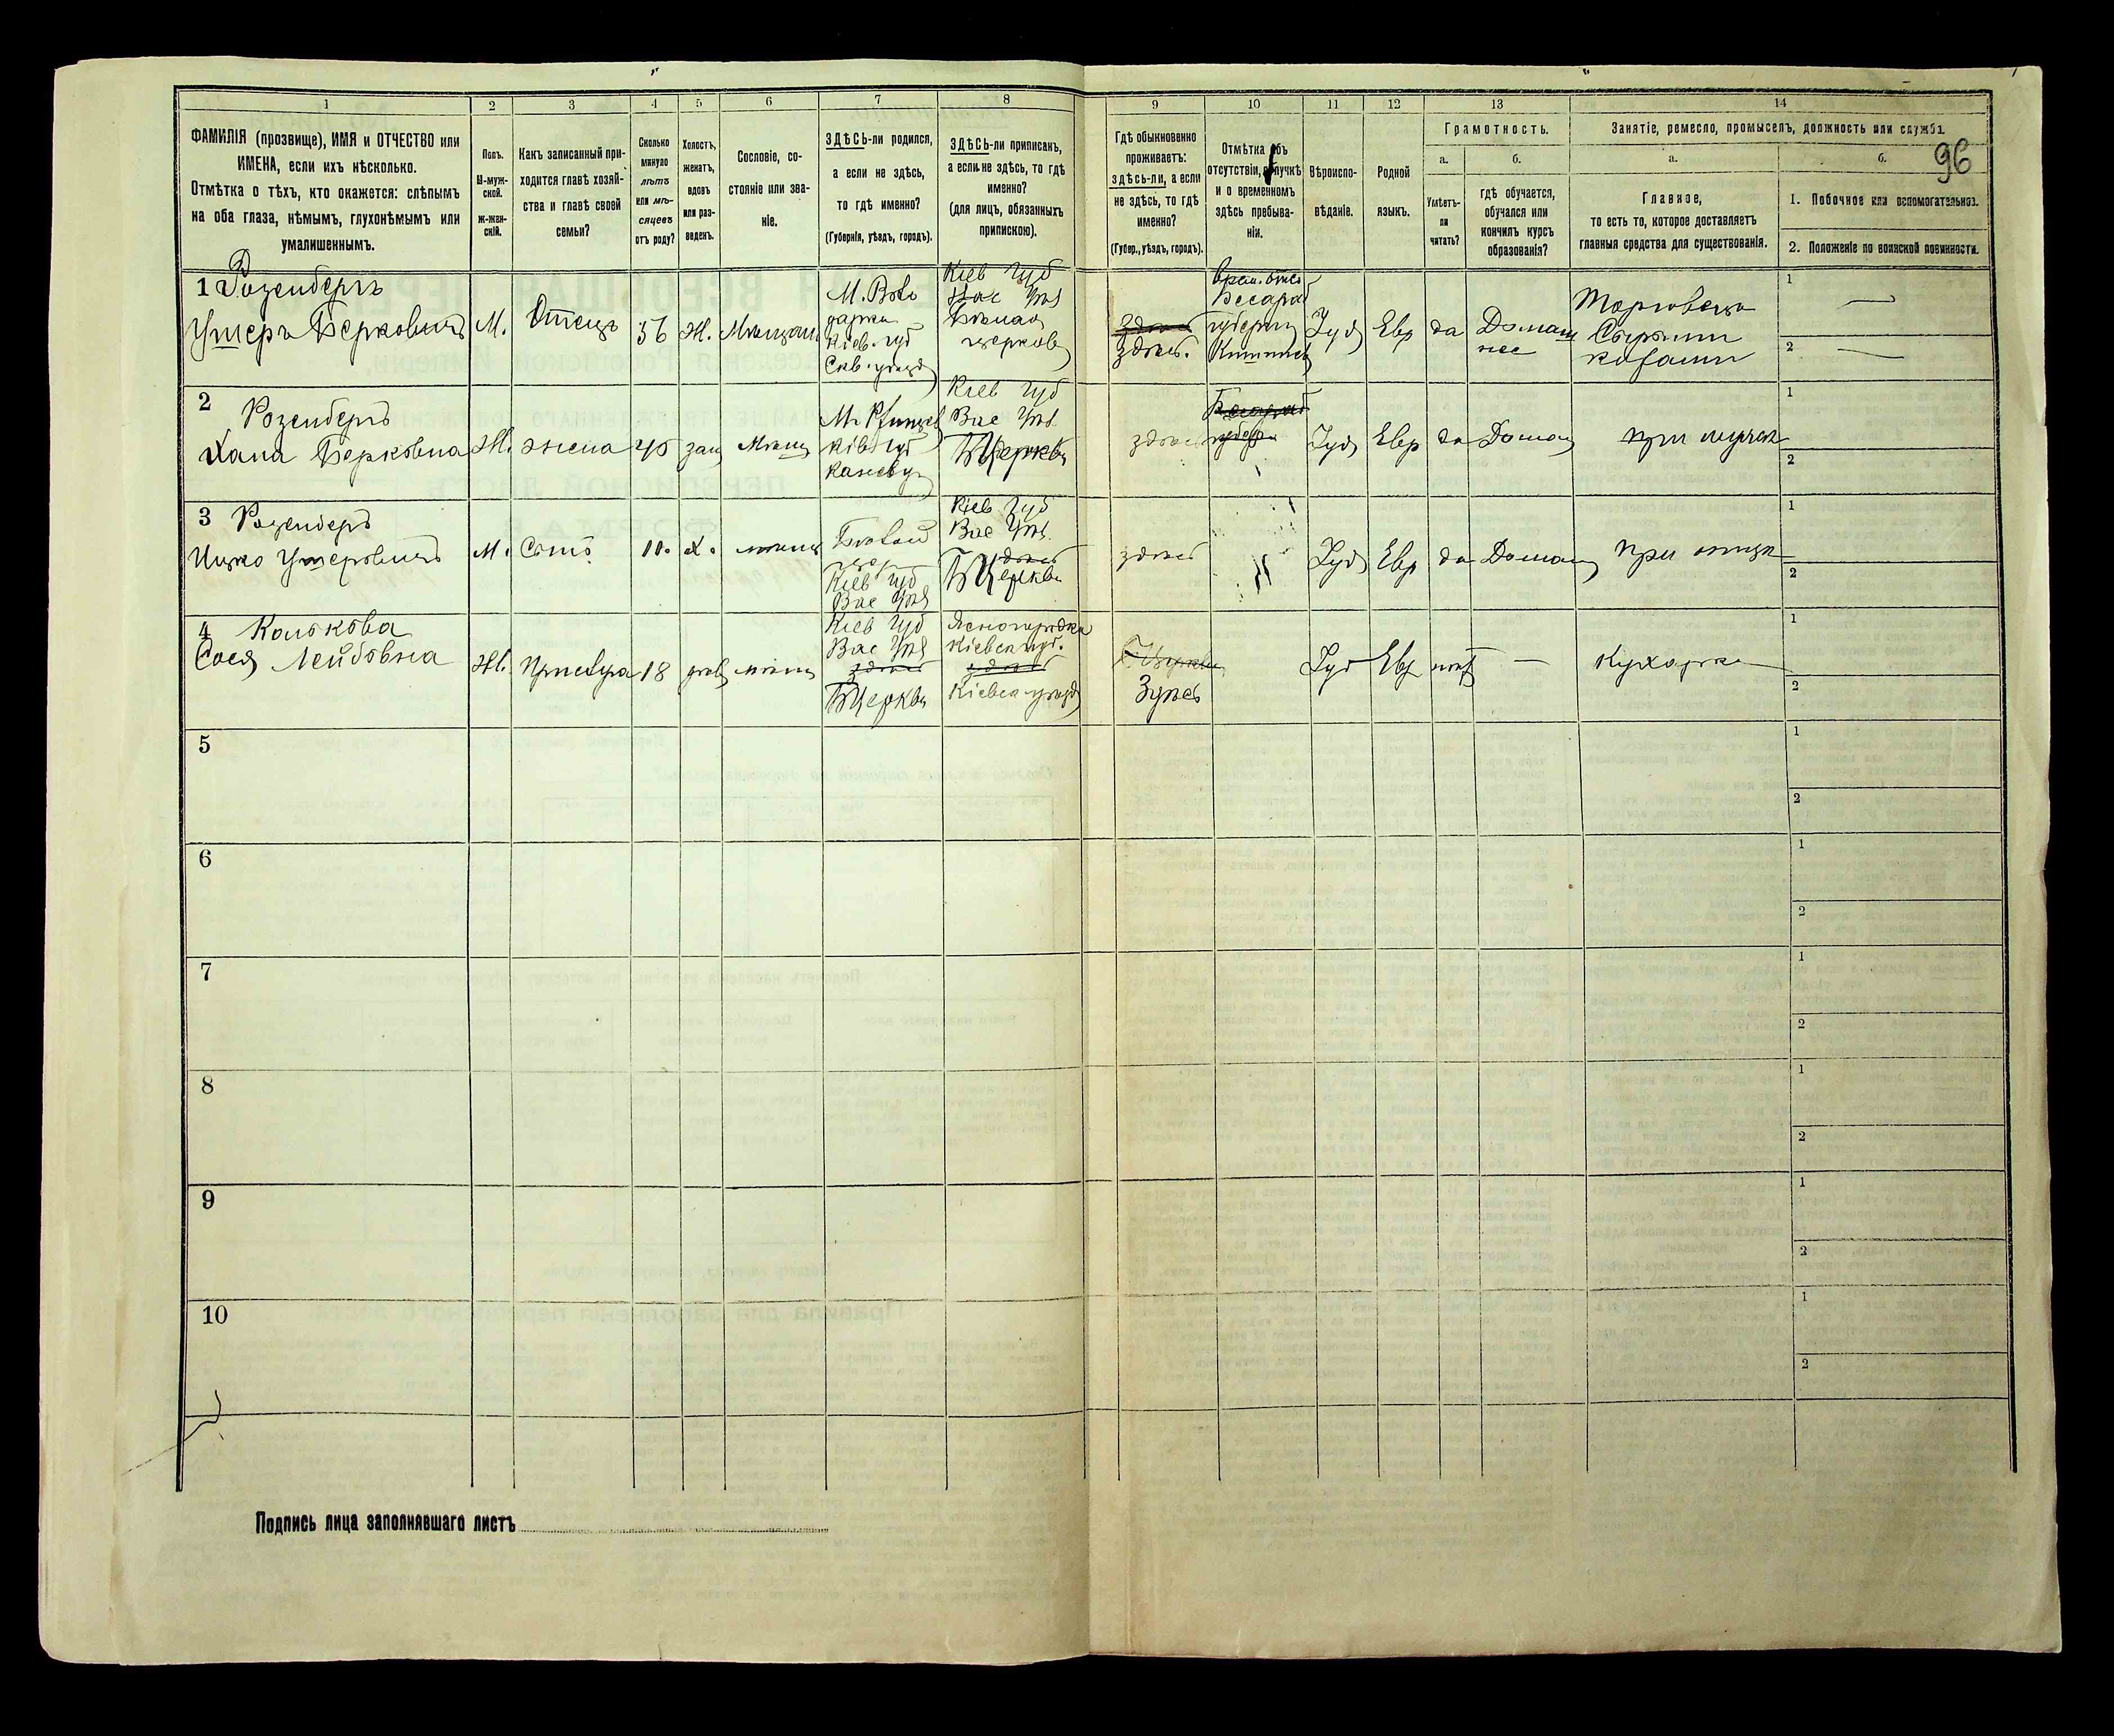 1
2
3
4
5
6
7
8
9
10
11
12
13
14
ФАМИЛІЯ (прозвище), ИМЯ и ОТЧЕСТВО или
ИМЕНА, если ихъ нѣсколько.
Отмѣтка о тѣхъ, кто окажется: слѣпымъ
на оба глаза, нѣмымъ, глухонѣмымъ или
умалишеннымъ.
Полъ.
М-муж-
ской.
Ж-жен-
скій.
Какъ записанный при-
ходится главѣ хозяй-
ства и главѣ своей
семьи?
Сколько
минуло
лѣтъ
или мѣ-
сяцевъ
отъ роду?
Холостъ,
женатъ,
вдовъ
или раз-
веденъ.
Сословіе, со-
стояніе или зва-
ніе.
ЗДѢСЬ-ли родился,
а если не здѣсь,
то гдѣ именно?
(Губернія, уѣздъ, городъ).
ЗДѢСЬ-ли приписанъ,
а если не здѣсь, то гдѣ
именно?
(для лицъ, обязанныхъ
припискою).
Гдѣ обыкновенно
проживаетъ:
здѣсь-ли, а если
не здѣсь, то гдѣ
именно?
(Губер., уѣздъ, городъ).
Отмѣтка объ
отсутствіи, отлучкѣ
и о временномъ
здѣсь пребыва-
ніи.
Вѣроиспо-
вѣданіе.
Родной
языкъ.
Грамотность.
а.
Умѣетъ-
ли
читать?
б.
гдѣ обучается,
обучался или
кончилъ курсъ
образованія?
Занятіе, ремесло, промыселъ, должность или служба.
а.
Главное,
то есть то, которое доставляетъ
главныя средства для существованія.
б.
96
1. Побочное или вспомогательное.
2. Положеніе по воинской повинности.
1 Розенбергъ
Ушеръ Берковичъ
М.
Отецъ
56
Ж.
Мѣщан
дарка
Кіев. губ
Скв. уѣздъ
Кіев Губ
Вас Уѣз
Бѣлая
церковь
здѣсь
здѣсь.
Бесараб
губерни
Іуд
Евр
да
Домаш
нее
Торговецъ
Сырыми
кожами
1
2
2
Розенбергъ
Хана Берковна
Ж.
жена
45
зам
мѣщ
Кіев губ
Канев у
Кіев Губ
Вас Уѣз
БЦерквь
здѣсь
Бесараб
губерн
Іуд
Евр
да
Домаш
при мужѣ
1
2
3
Розенберъ
Ицко Ушеровичъ
М.
Сынъ
11.
Х.
мѣщ
Кіев Губ
Вас Уѣз
Кіев Губ
Вас Уѣз
здѣсь
БЦерквь
здѣсь
Іуд
Евр
да
Домаш
при отцѣ
1
2
4
Колокова
Сося Лейбовна
Ж.
Прислуга
18
дѣв
мѣщ
Кіев Губ
Вас Уѣз
здѣсь
БЦерквь
Ясногородка
Кіевск губ.
здѣсь
Кіевск уѣзд
Б.Церквь
Здѣсь
Іуд
Евр
нѣт
—
Кухарка
1
2
5
1
2
6
1
2
7
1
2
8
1
2
9
1
2
10
1
2
Подпись лица заполнявшаго листъ